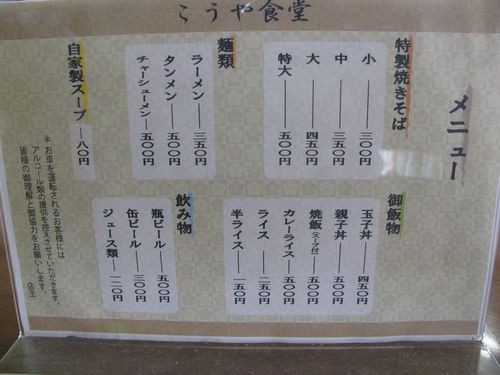 こうや食堂
メニュー
特製焼きそば
小 ── 三〇〇円
中 ── 三五〇円
大 ── 四五〇円
特大 ── 五〇〇円
麺類
ラーメン ── 三五〇円
タンメン ── 五〇〇円
チャーシューメン ─ 五〇〇円
自家製スープ ─ 八〇円
御飯物
玉子丼 ── 四五〇円
親子丼 ── 五〇〇円
焼飯(スープ付) ── 五〇〇円
カレーライス ─ 五〇〇円
ライス ── 二五〇円
半ライス ── 一五〇円
飲み物
瓶ビール ── 五〇〇円
缶ビール ── 三〇〇円
ジュース類 ─ 一二〇円
＊お車を運転されるお客様には
アルコール類の提供を控えさせていただきます。
皆様の御理解と御協力をお願いします。
店主